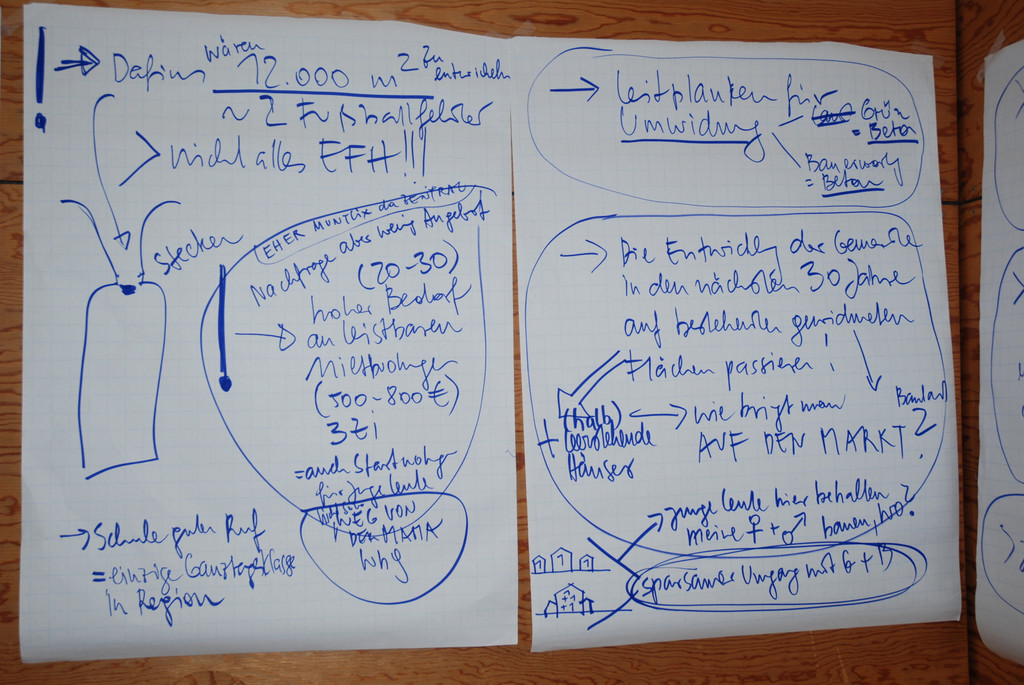 ! → Dafins wären 12.000 m² zu entwickeln
~ 2 Fußballfelder
> nicht alles EFH!!!
Stecken
EHER MUNTLIX da ZENTRAL
Nachfrage aber wenig Angebot
(20-30)
hoher Bedarf
→ an leistbaren
Mietwohnungen
(500-800 €)
3 Zi
= auch Startwohnungen
für junge Leute
WEG VON
DER MAMA
Whg
→ Schule guter Ruf
= einzige Ganztagesklasse
in Region
→ Leitplanken für
Umwidung
Grün
= Beton
Bauerwartg
= Beton
→ Die Entwicklg der Gemeinde
in den nächsten 30 Jahre
auf bestehenden gewidmeten
Flächen passieren!
+ (halb) leerstehende
Häuser
↔ wie bringt man Bauland
AUF DEN MARKT?
→ junge Leute hier behalten
meine ♀ + ♂ bauen, wo?
sparsamer Umgang mit G + B